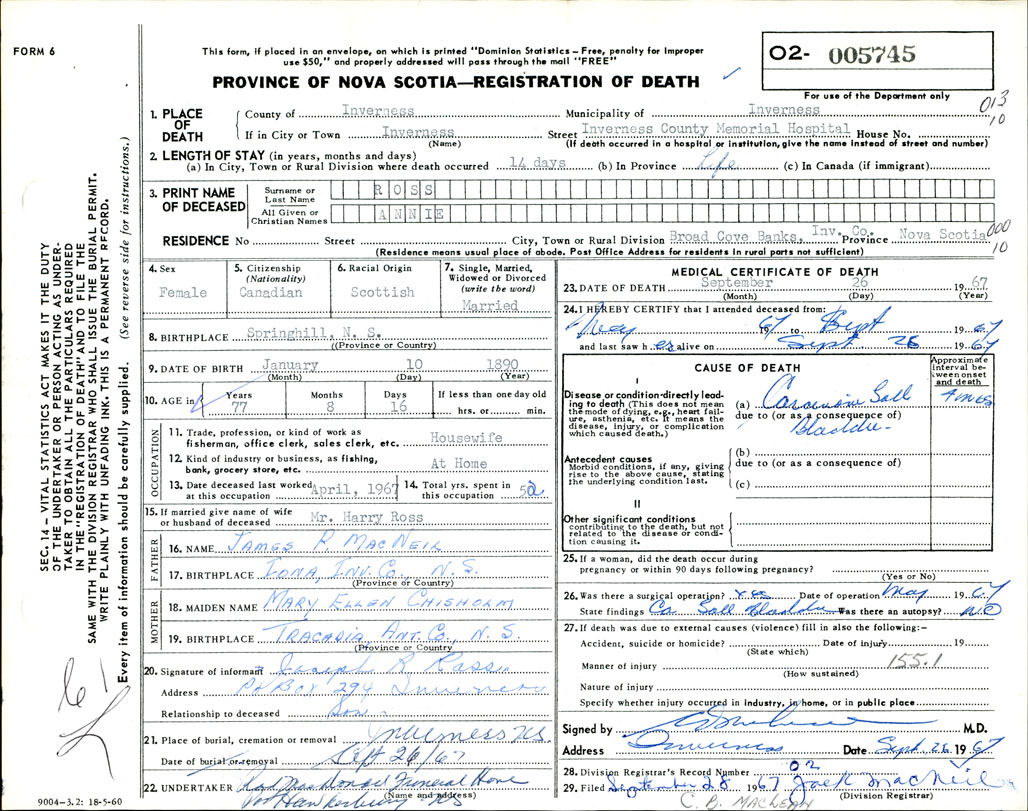 FORM 6
This form, if placed in an envelope, on which is printed "Dominion Statistics – Free, penalty for improper
use $50," and properly addressed will pass through the mail "FREE"
PROVINCE OF NOVA SCOTIA—REGISTRATION OF DEATH
02- 005745
For use of the Department only
013
10
1. PLACE OF DEATH
County of Inverness Municipality of Inverness
If in City or Town Inverness Street Inverness County Memorial Hospital House No.
(Name) (If death occurred in a hospital or institution, give the name instead of street and number)
2. LENGTH OF STAY (in years, months and days)
(a) In City, Town or Rural Division where death occurred 14 days (b) In Province Life (c) In Canada (if immigrant)
3. PRINT NAME OF DECEASED
Surname or Last Name ROSS
All Given or Christian Names ANNIE
RESIDENCE No Street City, Town or Rural Division Broad Cove Banks, Inv. Co. Province Nova Scotia
000
10
(Residence means usual place of abode. Post Office Address for residents in rural parts not sufficient)
4. Sex
Female
5. Citizenship
(Nationality)
Canadian
6. Racial Origin
Scottish
7. Single, Married, Widowed or Divorced
(write the word)
Married
8. BIRTHPLACE Springhill, N. S.
((Province or Country)
9. DATE OF BIRTH January 10 1890
(Month) (Day) (Year)
10. AGE in Years 77 Months 8 Days 16 If less than one day old
hrs. or min.
OCCUPATION
11. Trade, profession, or kind of work as
fisherman, office clerk, sales clerk, etc. Housewife
12. Kind of industry or business, as fishing,
bank, grocery store, etc. At Home
13. Date deceased last worked
at this occupation April, 1967
14. Total yrs. spent in
this occupation 50
15. If married give name of wife
or husband of deceased Mr. Harry Ross
FATHER
16. NAME JAMES P. MACNEIL
17. BIRTHPLACE IONA, INV. CO., N. S.
(Province or Country)
MOTHER
18. MAIDEN NAME MARY ELLEN CHISHOLM
19. BIRTHPLACE TRACADIA, ANT. CO., N. S.
(Province or Country)
20. Signature of informant Joseph R
Address PO Box 294 Inverness
Relationship to deceased Son
21. Place of burial, cremation or removal Inverness NS
Date of burial or removal Sept 26/67
22. UNDERTAKER Funeral Home
(Name and address)
Port Hawkesbury NS
9004–3.2: 18-5-60
MEDICAL CERTIFICATE OF DEATH
23. DATE OF DEATH September 26 1967
(Month) (Day) (Year)
24. I HEREBY CERTIFY that I attended deceased from:
May 1967 to Sept 1967
and last saw her alive on Sept 26 1967
CAUSE OF DEATH
Approximate interval between onset and death
I
Disease or condition directly leading to death (This does not mean
the mode of dying, e.g., heart failure, asthenia, etc. It means the
disease, injury, or complication
which caused death.)
(a) Carcinoma Gall
due to (or as a consequence of)
Bladder
4 mos
Antecedent causes
Morbid conditions, if any, giving
rise to the above cause, stating
the underlying condition last.
(b)
due to (or as a consequence of)
(c)
II
Other significant conditions
contributing to the death, but not
related to the disease or condition causing it.
25. If a woman, did the death occur during
pregnancy or within 90 days following pregnancy?
(Yes or No)
26. Was there a surgical operation? Yes Date of operation May 1967
State findings Ca Gall Bladder Was there an autopsy? NO
27. If death was due to external causes (violence) fill in also the following:–
Accident, suicide or homicide? Date of injury 19
(State which)
Manner of injury 155.1
(How sustained)
Nature of injury
Specify whether injury occurred in industry, in home, or in public place
Signed by M.D.
Address Inverness Date Sept. 26 1967
28. Division Registrar's Record Number 02
29. Filed September 28 1967 Jack MacNeil
(Division Registrar)
C. B. MACLEAN
SEC. 14 – VITAL STATISTICS ACT MAKES IT THE DUTY
OF THE UNDERTAKER OR PERSON ACTING AS UNDERTAKER TO OBTAIN ALL THE PARTICULARS REQUIRED
IN THE "REGISTRATION OF DEATH" AND TO FILE THE
SAME WITH THE DIVISION REGISTRAR WHO SHALL ISSUE THE BURIAL PERMIT.
WRITE PLAINLY WITH UNFADING INK. THIS IS A PERMANENT RECORD.
Every item of information should be carefully supplied. (See reverse side for instructions.)